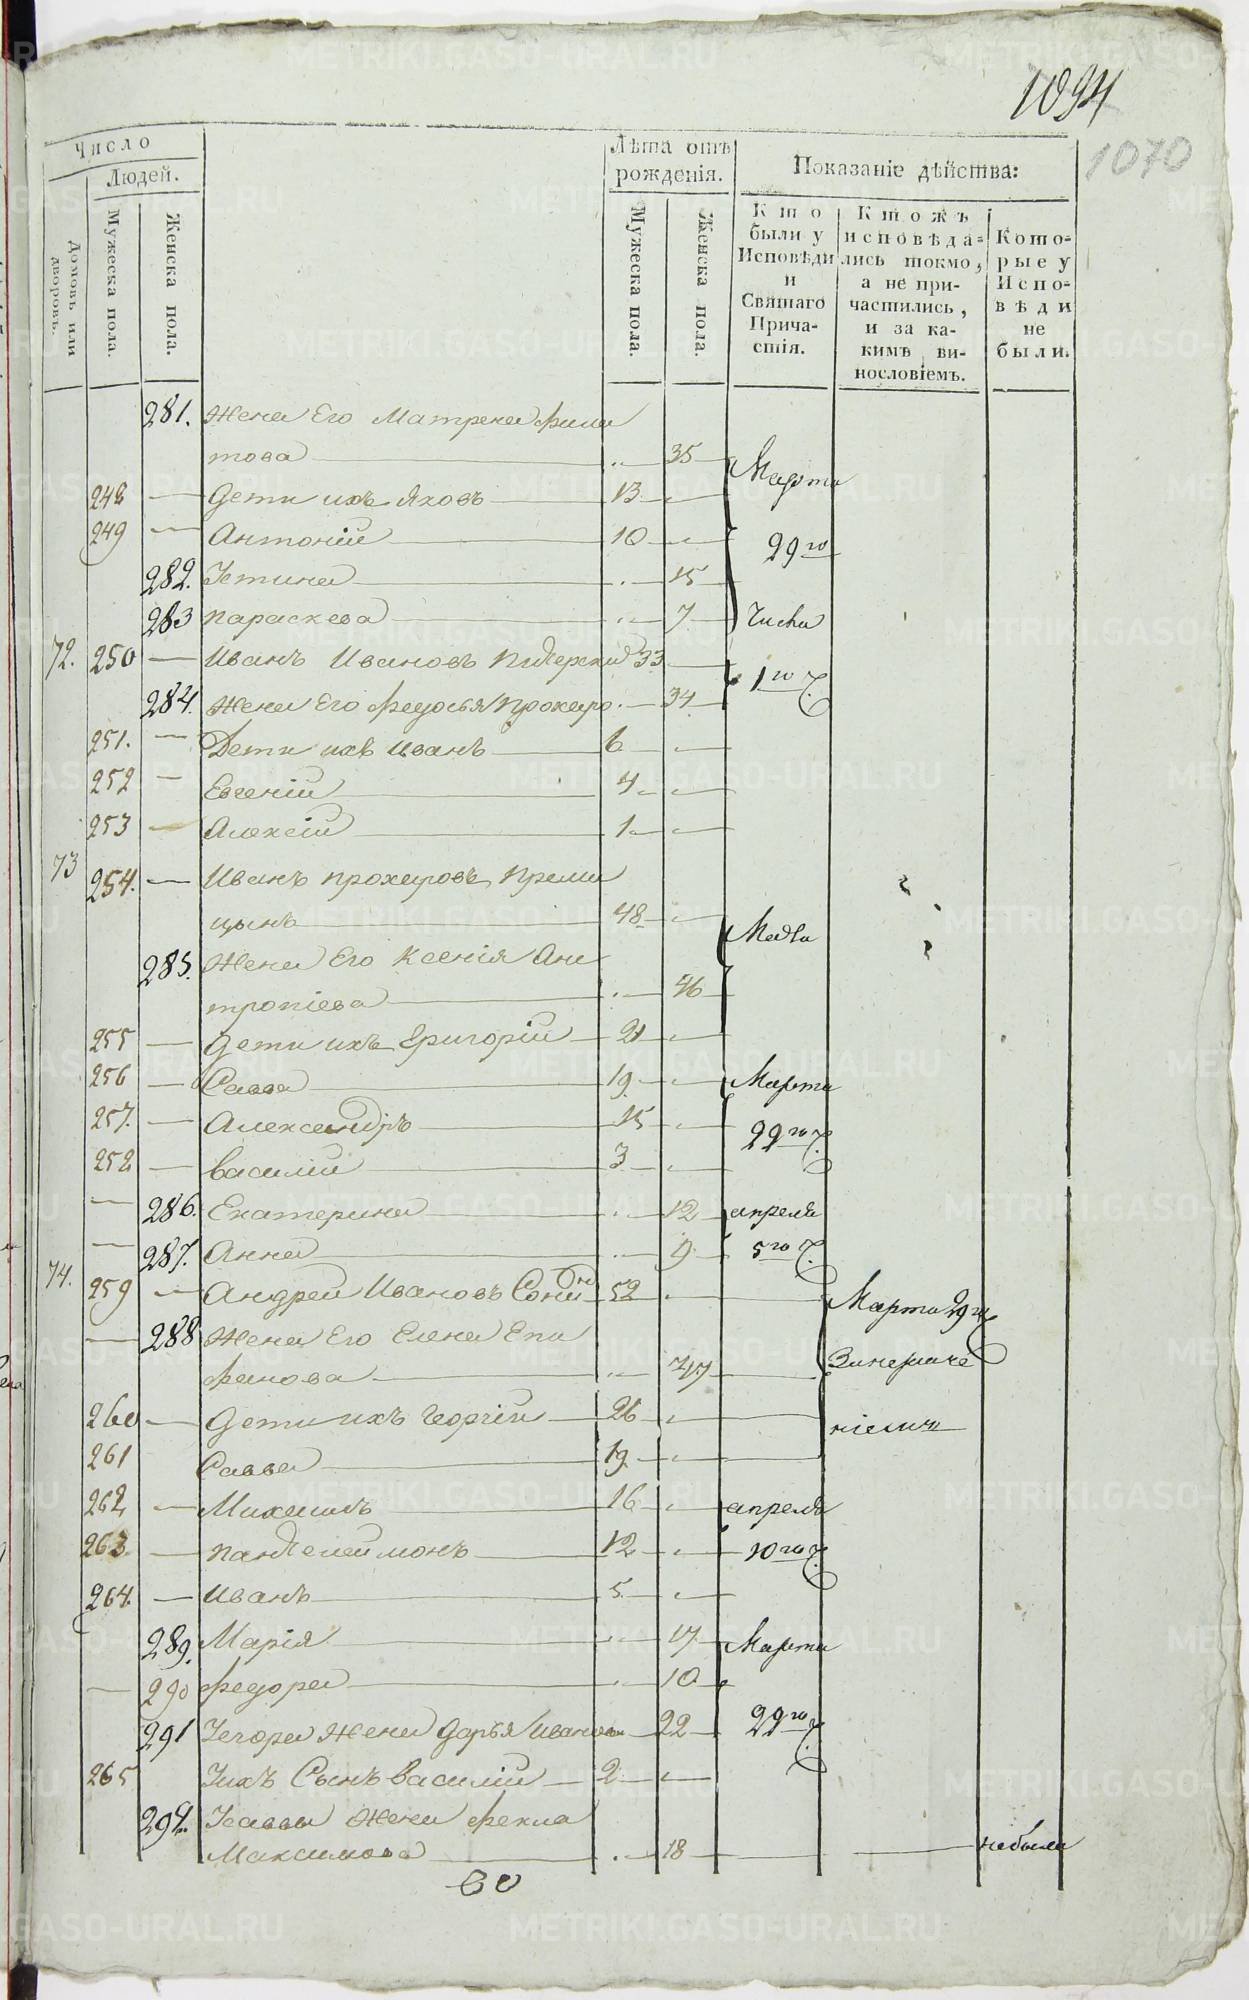 1094
1070
Число
Людей.
Домовъ или дворовъ.
Мужеска пола.
Женска пола.
Лѣта отъ рожденія.
Мужеска пола.
Женска пола.
Показаніе дѣйства:
Кто были у Исповѣди и Святаго Причастія.
Ктожъ исповѣдались токмо, а не причастились, и за какимъ винословіемъ.
Которые у Исповѣди не были.
281. Жена Его Матрена Фили
това 35 Марта
248 Дети ихъ Яковъ 13
249 Антоній 10 29го
282. Устина 15
283 Параскева 7 Числа
72. 250 Иванъ Ивановъ 33
284. Жена Его Федосья Прохоро 34 1го ч.
251. Дети ихъ Иванъ 6
252 Евгеній 4
253 Алексій 1
73 254. Иванъ Прохоровъ Преми
цынъ 48 Марта
285. Жена Его Ксенія Ан
тропіева 46
255 Дети ихъ Григорій 21
256 Савва 19 Марта
257. Александръ 15 22го ч.
258 Василій 3
286. Екатерина 12 апреля
287. Анна 9 5го ч.
74. 259 Андрей Ивановъ 52 Марта 29го
288 Жена Его Елена Епи
фанова 47
260 Дети ихъ Георгій 26
261 Савва 19
262 Михаилъ 16 апреля
263. Пантелеймонъ 12 10го ч.
264. Иванъ 5
289. Марія 17 Марта
290 Федора 10
291 Жена Дарья Иванова 22 29го ч.
265 Ихъ Сынъ Василій 2
292. Саввы Жена Фекла
Максимова 18 небыла